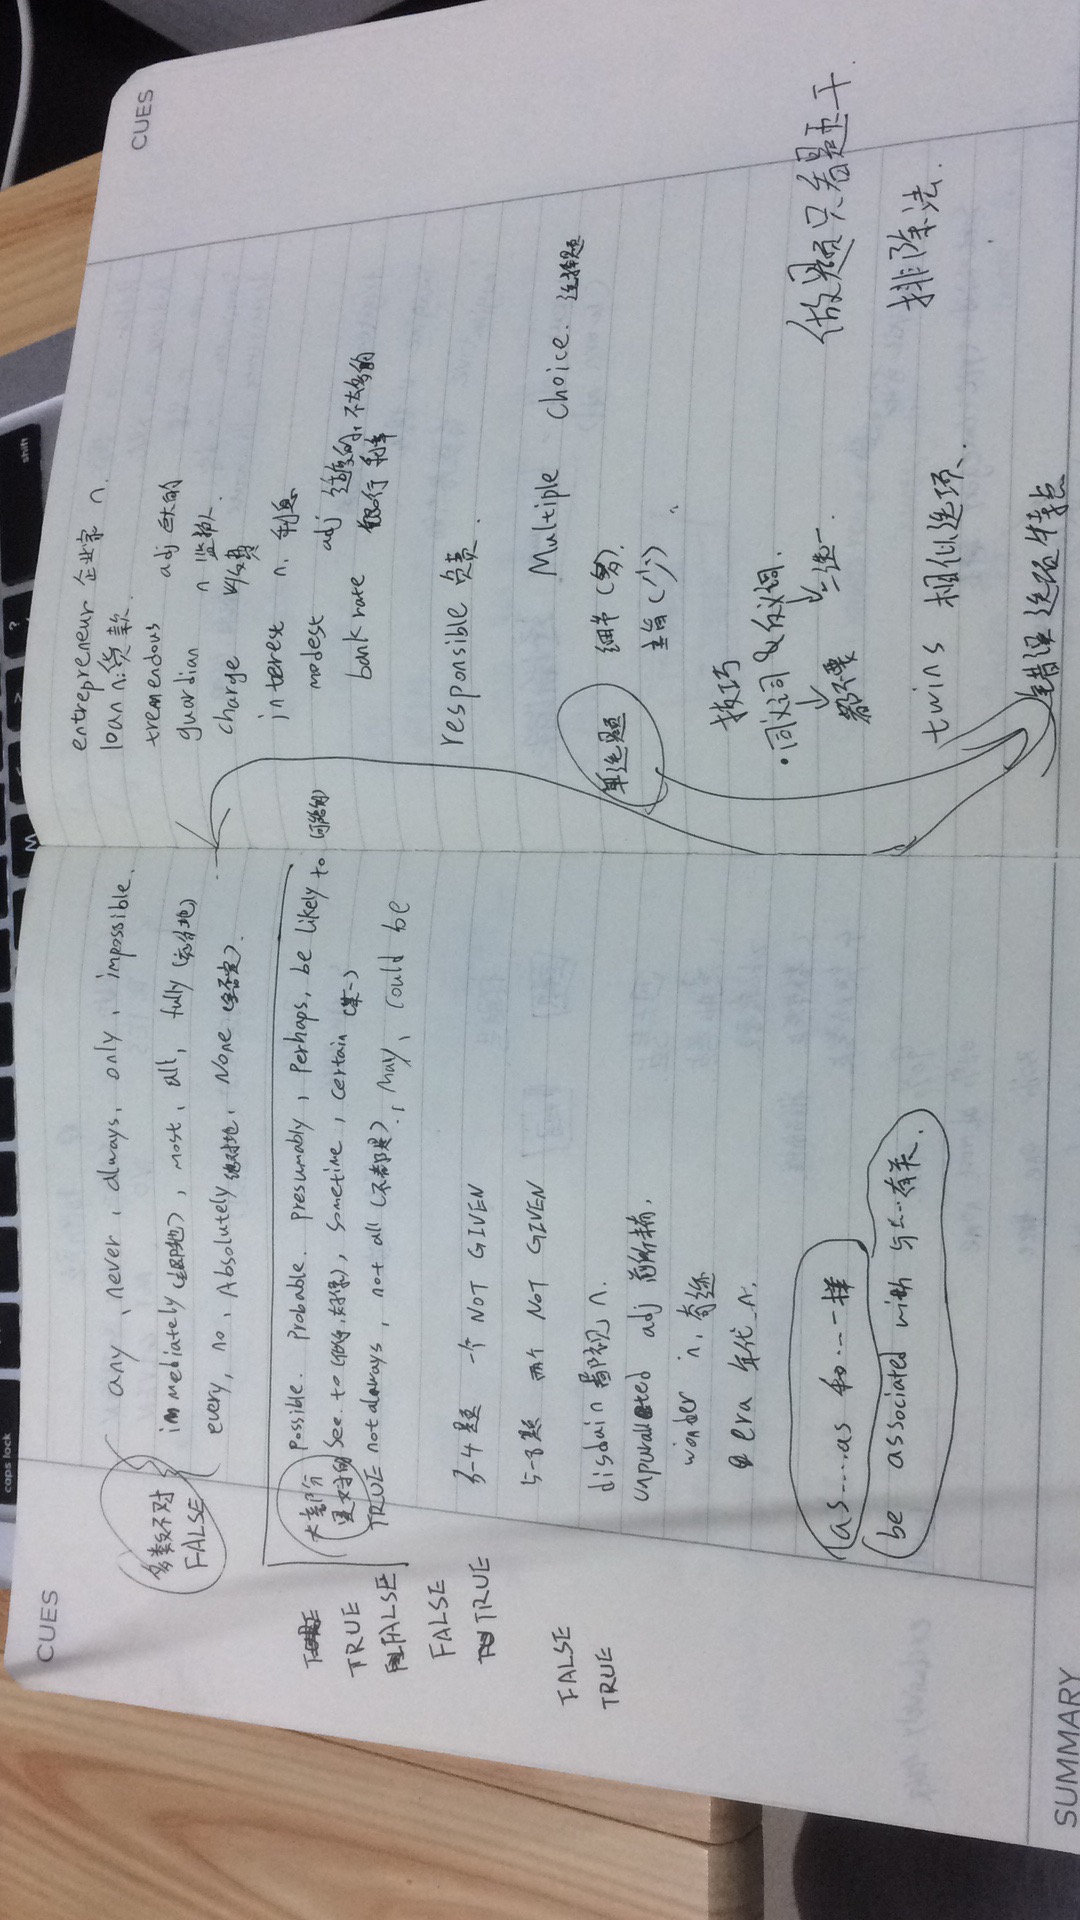 CUES
多数不对
FALSE
any、never、always、only、impossible.
immediately(立即地)、most、all、fully(充分地)
every、no、Absolutely 绝对地、None (全否定).
大部分
是对的
TRUE
possible. Probable. Presumably, Perhaps, be likely to (可能的)
See. to (似乎,好像), Sometime, certain (某一)
not always, not all (不都是)., may、could be
TRUE
FALSE
FALSE
TRUE
FALSE
TRUE
3-4题 一个 NOT GIVEN
5-8题 两个 NOT GIVEN
disdain 鄙视 n.
adj 前所未有.
wonder n. 奇迹
era 年代 n.
as....as 和...一样
be associated with 与...有关.
SUMMARY
CUES
entrepreneur 企业家 n.
loan n:货款.
tremendous adj 巨大的
guardian n 监护人.
charge 收费
interest n. 利息
modest adj 适度的,不太多的
bank rate 银行利率
responsible 负责.
Multiple choice. 选择题
单选题
细节(多).
主旨(少)
技巧
·同义词 & 反义词.
都不要
二选一
做题只看题干.
twins 相似选项.
排除法.
错误选项特点